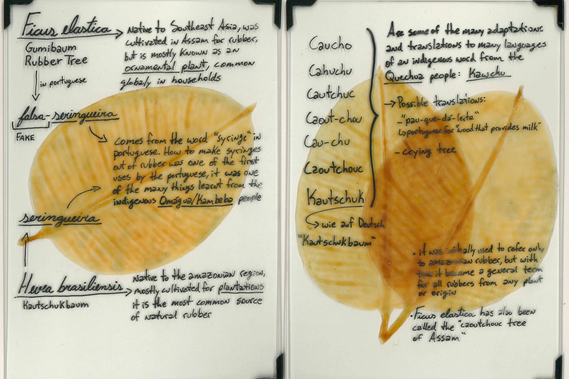 Ficus elastica
Gumibaum
Rubber Tree
in portuguese
falsa-seringueira
FAKE
Native to Southeast Asia, was
cultivated in Assam for rubber,
but is mostly known as an
ornamental plant, common
globally in households
comes from the word "syringe" in
portuguese. How to make syringes
out of rubber was one of the first
uses by the portuguese, it was one
of the many things learnt from the
indigenous Omágua/Kambeba people
seringueira
Hevea brasiliensis
Kautschukbaum
Native to the amazonian region,
mostly cultivated for plantations
it is the most common source
of natural rubber
Caucho
Cahuchu
Cautchuc
Caout-chou
Cau-chu
Caoutchouc
Kautschuk
wie auf Deutsch
"Kautschukbaum"
Are some of the many adaptations
and translations to many languages
of an indigenous word from the
Quechoa people: Kawchu
Possible translations:
-"pau-que-dá-leite"
portuguese for "wood that provides milk"
- crying tree
• it was initially used to refer only
to amazonian rubber, but with
time it became a general term
for all rubbers from any plant
or origin
• Ficus elastica has also been
called the "caoutchouc tree
of Assam"